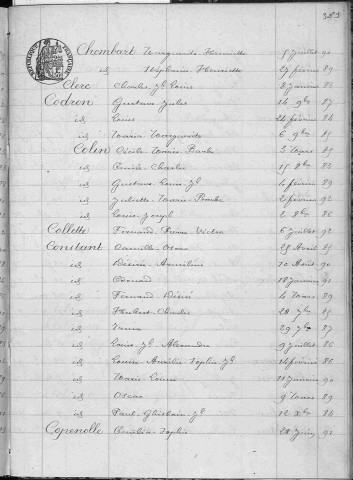 383
Chombart Marguerite Henriette 5 juillet 90
id Stéphanie Henriette 27 février 89
Clerc Charles Jh Louis 8 janvier 83
Codron Gustave Jules 14 9bre 87
id Louis 21 février 84
id Maria Marguerite 6 9bre 85
Colin Cécile Marie Barbe 3 Mars 85
id Charles 15 8bre 83
id Gustave Louis Jh 4 février 89
id Juliette Marie 2 février 92
id Louis Joseph 2 8bre 86
Collette Fernand Pierre Victor 6 juillet 92
Constant Camille Oscar 25 Avril 85
id Désiré 30 Août 90
id Edouard 18 janvier 91
id Fernand Désiré 4 Mars 89
id Charles 28 7bre 85
id 29 7bre 87
id Louis Jh Alexandre 9 juillet 86
id Louise Sophie Jh 14 février 86
id Marie Louise 11 janvier 90
id Oscar 9 Mars 89
id Paul Ghislain Jh 12 Xbre 84
Copenolle Sophie 28 juin 92